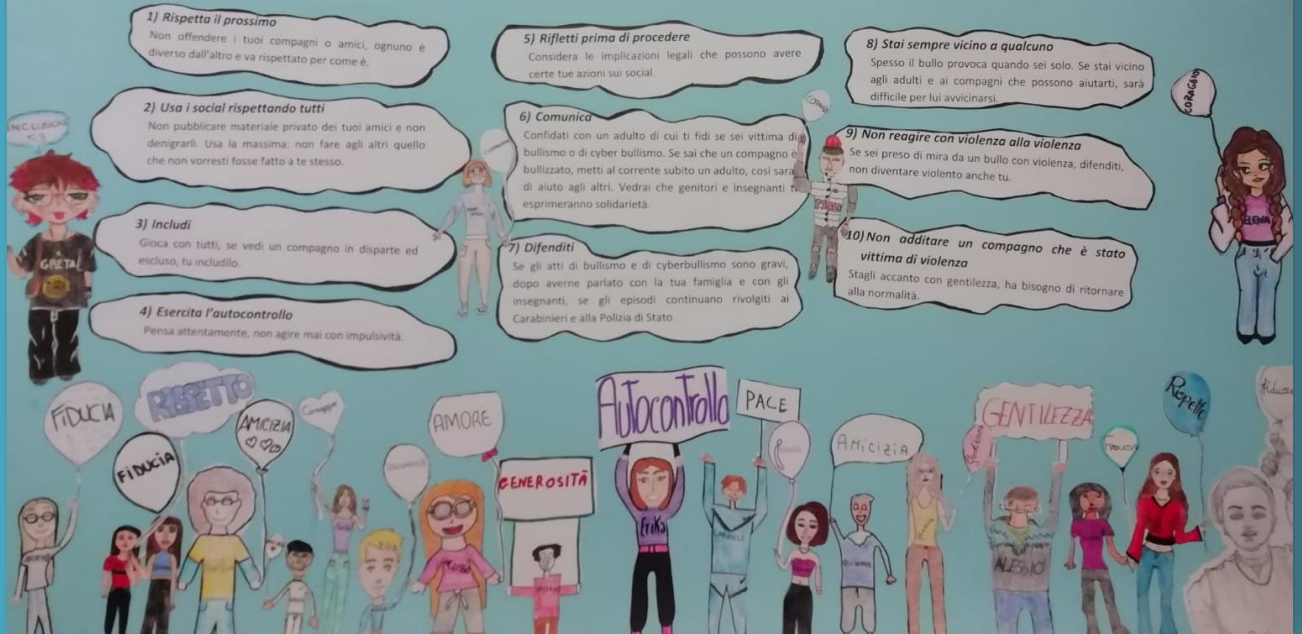 1) Rispetta il prossimo
Non offendere i tuoi compagni o amici, ognuno è
diverso dall'altro e va rispettato per come è.
2) Usa i social rispettando tutti
Non pubblicare materiale privato dei tuoi amici e non
denigrarli. Usa la massima: non fare agli altri quello
che non vorresti fosse fatto a te stesso.
3) Includi
Gioca con tutti, se vedi un compagno in disparte ed
escluso, tu includilo.
4) Esercita l'autocontrollo
Pensa attentamente, non agire mai con impulsività.
5) Rifletti prima di procedere
Considera le implicazioni legali che possono avere
certe tue azioni sui social.
6) Comunica
Confidati con un adulto di cui ti fidi se sei vittima di
bullismo o di cyber bullismo. Se sai che un compagno è
bullizzato, metti al corrente subito un adulto, così sarai
di aiuto agli altri. Vedrai che genitori e insegnanti
esprimeranno solidarietà.
7) Difenditi
Se gli atti di bullismo e di cyberbullismo sono gravi,
dopo averne parlato con la tua famiglia e con gli
insegnanti, se gli episodi continuano rivolgiti ai
Carabinieri e alla Polizia di Stato.
8) Stai sempre vicino a qualcuno
Spesso il bullo provoca quando sei solo. Se stai vicino
agli adulti e ai compagni che possono aiutarti, sarà
difficile per lui avvicinarsi.
9) Non reagire con violenza alla violenza
Se sei preso di mira da un bullo con violenza, difenditi,
non diventare violento anche tu.
10) Non additare un compagno che è stato
vittima di violenza
Stagli accanto con gentilezza, ha bisogno di ritornare
alla normalità.
INCLUSIONE
GRETA
CORAGGIO
ELENA
FIDUCIA
RISPETTO
FIDUCIA
AMICIZIA
AMORE
GENEROSITÀ
AUTOCONTROLLO
PACE
AMICIZIA
GENTILEZZA
Rispetto
Erika
ALESSIO